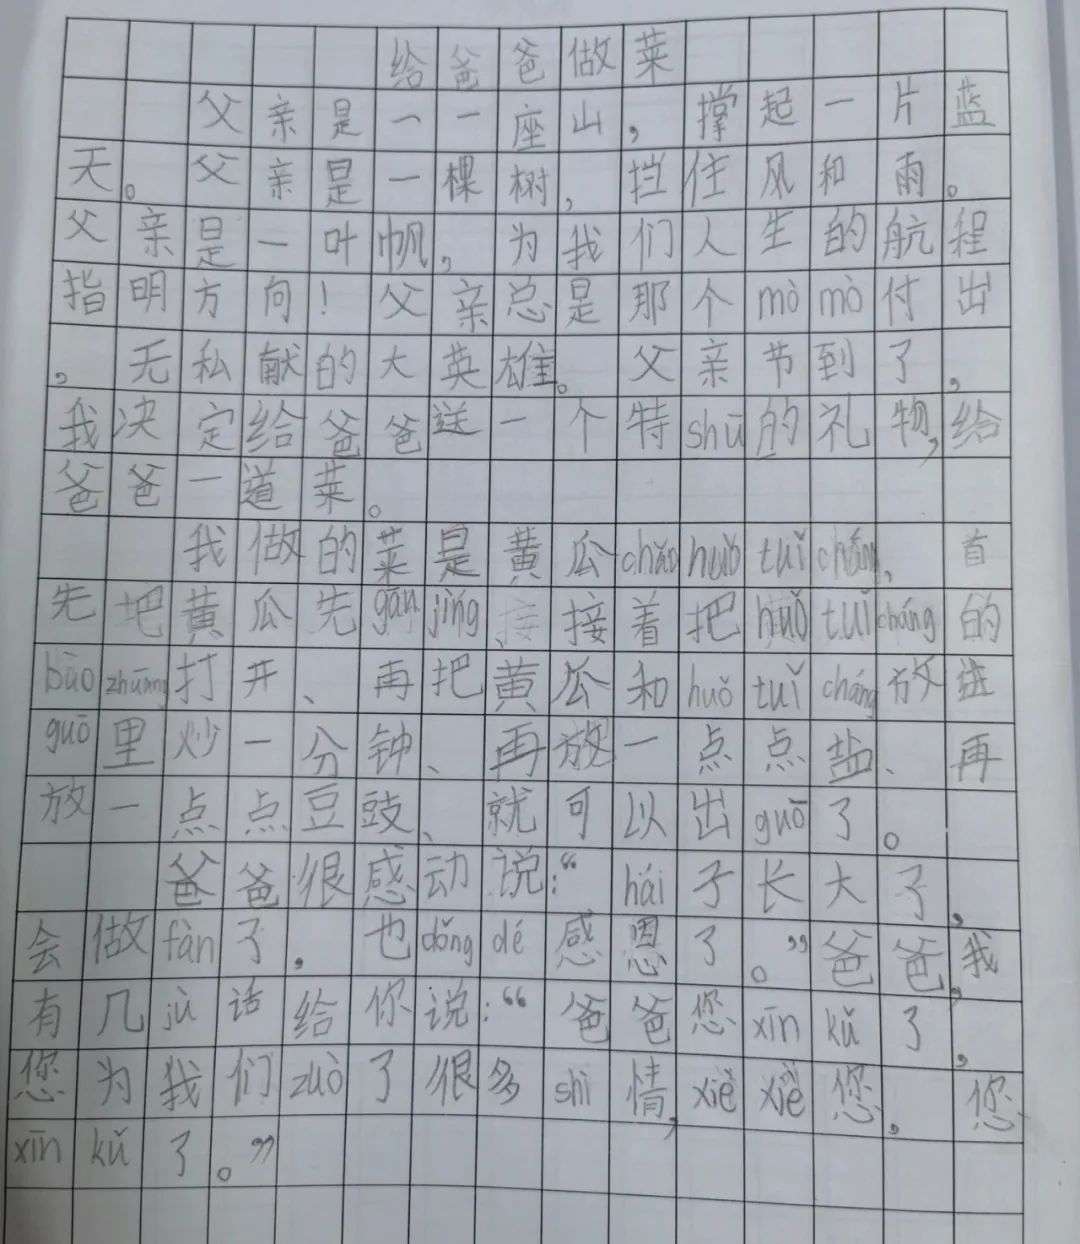 给爸爸做菜
父亲是一一座山，撑起一片蓝
天。父亲是一棵树，挡住风和雨。
父亲是一叶帆，为我们人生的航程
指明方向！父亲总是那个mò mò付出
，无私献的大英雄。父亲节到了，
我决定给爸爸送一个特shū的礼物，给
爸爸一道菜。
我做的菜是黄瓜chǎo huǒ tuǐ cháng，首
先把黄瓜先gān jìng、接接着把huǒ tuǐ cháng的
bāo zhuāng打开、再把黄瓜和huǒ tuǐ cháng放进
guō里炒一分钟、再放一点点盐、再
放一点点豆豉、就可以出guō了。
爸爸很感动说：“hái子长大了，
会做fàn了，也dǒng dé感恩了。”爸爸，我
有几jù话给你说：“爸爸您xīn kǔ了，
您为我们zuò了很多shì情，xiè xiè您，您
xīn kǔ了。”